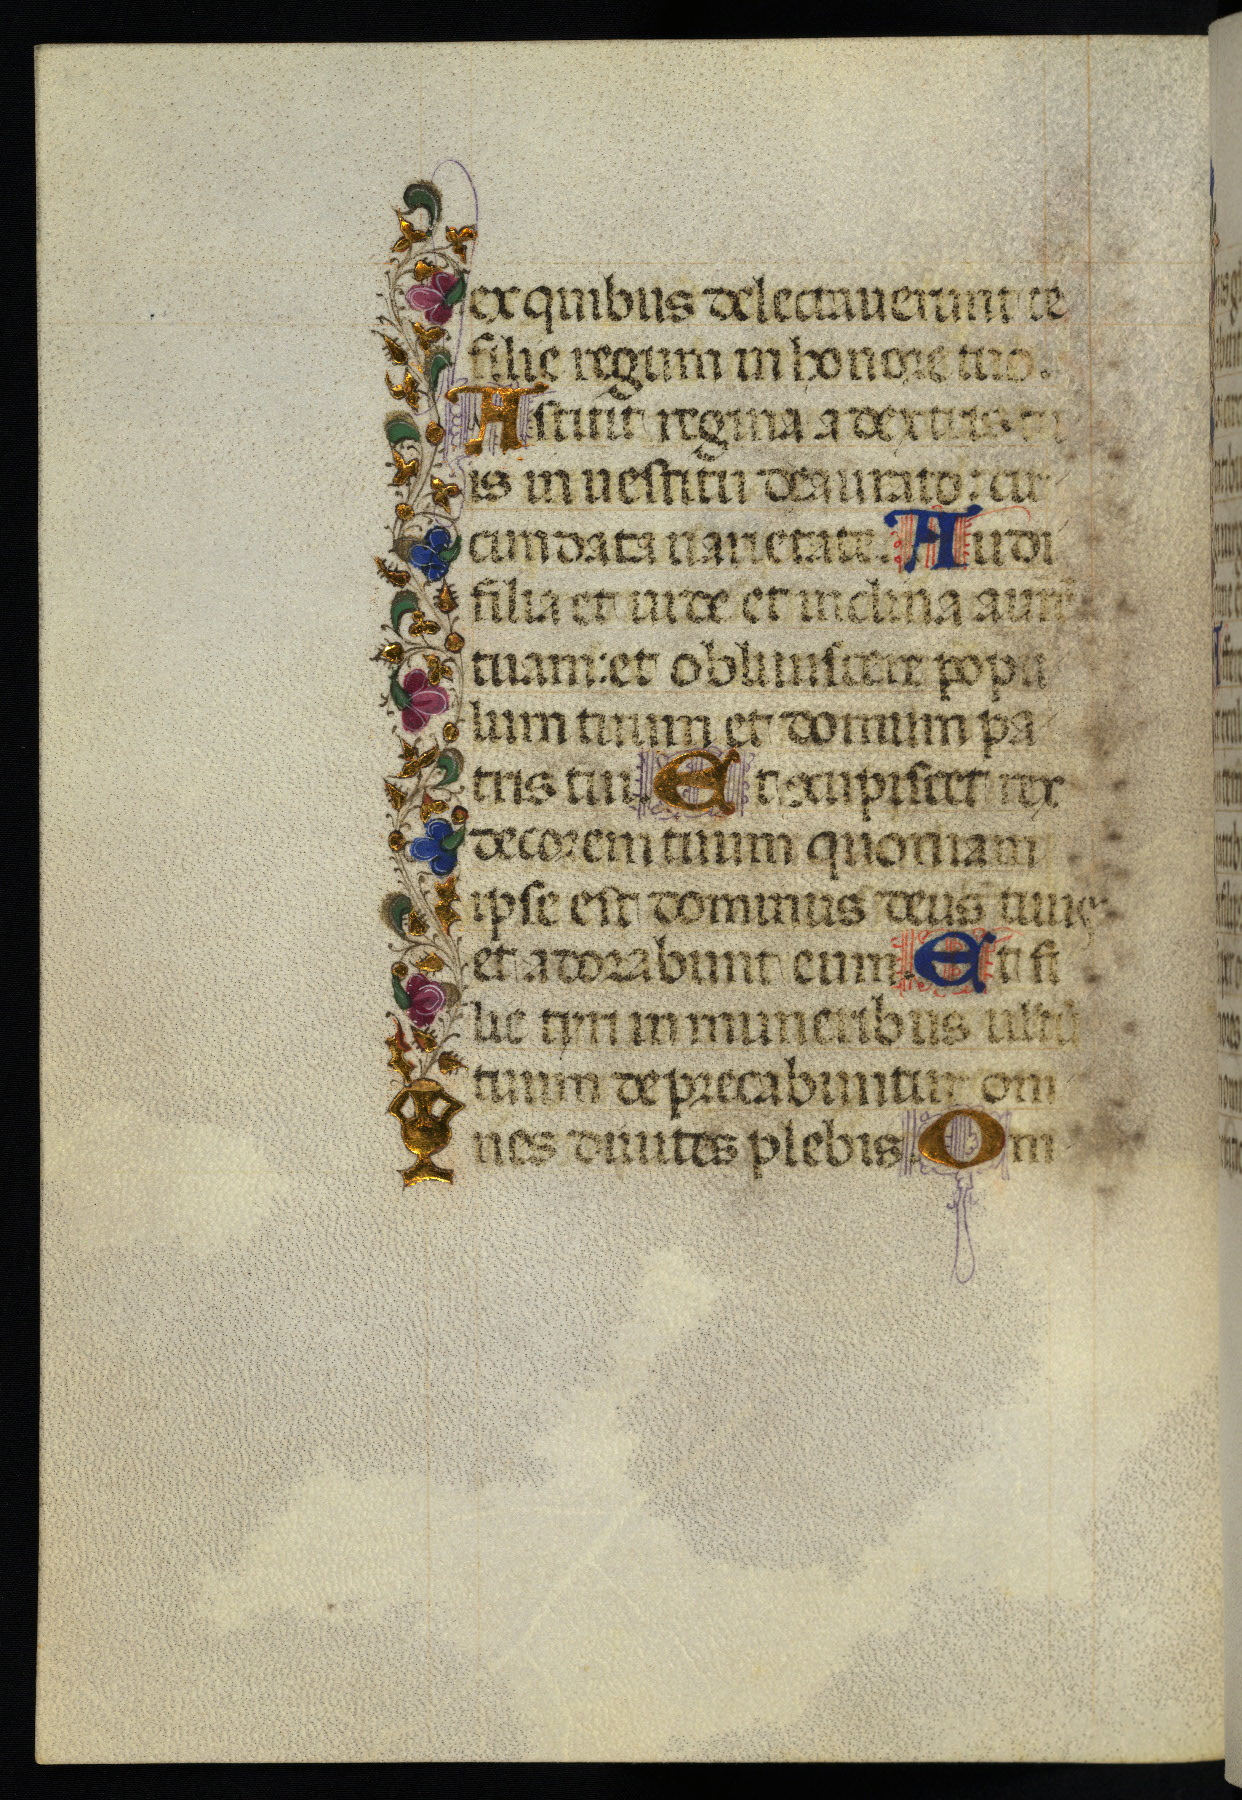 ex quibus delectauerunt te
filie regum in honore tuo.
Astitit regina a dextris tu
is in uestitu deaurato: cir
cumdata uarietate. Audi
filia et uide et inclina aure
tuam: et obliuiscere popu
lum tuum et domum pa
tris tui. Et cupiscet rex
decorem tuum quoniam
ipse est dominus deus tuus
et adorabunt eum. Et fi
lie tyri in muneribus uultū
tuum deprecabuntur om
nes diuites plebis. Om